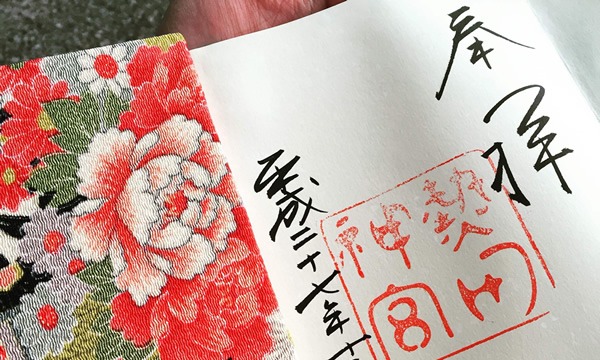 奉拝
熱田
神宮
平成二十七年十